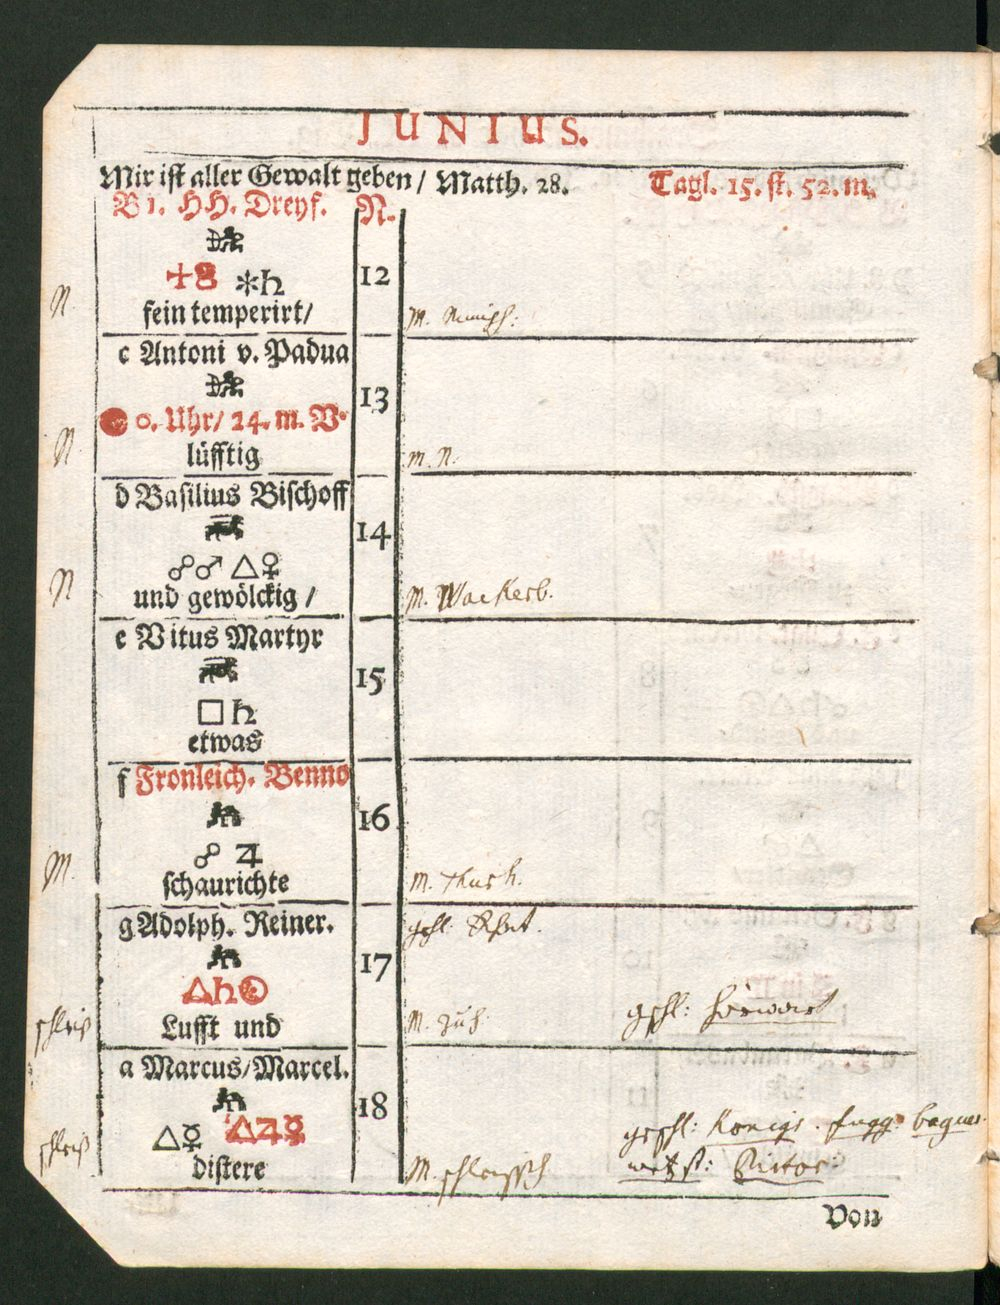 JUNIUS.
Mir ist aller Gewalt geben / Matth. 28. Tagl. 15. st. 52. m.
B 1. HH. Dreyf. N.
12
✶♄
N.
fein temperirt/
c Antoni v. Padua
13
0. Uhr/ 24. m. V.
N.
lüfftig m. N.
d Basilius Bischoff
14
☍♂ △♀
N
und gewölckig / m. Wackerb.
e Vitus Martyr
15
□ ♄
etwas
f Fronleich. Benno
16
☍ ♃
M.
schaurichte m. Thurh.
g Adolph. Reiner. gehl:
17
△♄☉
Lufft und M. gschl:
a Marcus/Marcel.
18
△☿ △♃☿ gschl: Königs. fugg:
distere M.
Von